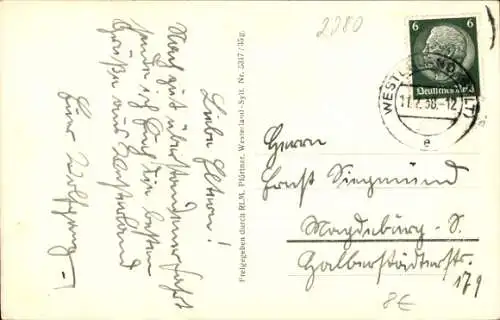 2280
Liebe Eltern!
Nach gut überstandener Fahrt
sende ich Euch die besten
Grüße aus Westerland
Euer Wolfgang
Freigegeben durch RLM. Pförtner, Westerland-Sylt Nr. 5317/35g.
6 6
Deutsches Reich
WESTERLAND (SYLT)
17.2.38.-12
e
Herrn
Ernst Siegmund
Magdeburg-S.
Halberstädterstr.
179
8€